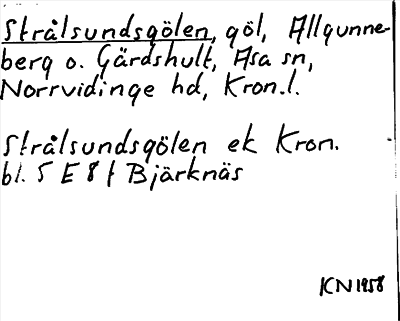 Strålsundsgölen, göl, Allgunne-
berg o. Gärdshult, Asa sn,
Norrvidinge hd, Kron.l.
Strålsundsgölen ek Kron.
bl. 5 E 8 f Bjärknäs
KN 1958